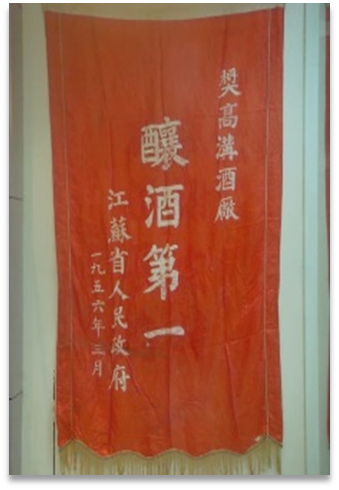 奬高溝酒廠
釀酒第一
江蘇省人民政府
一九五六年三月